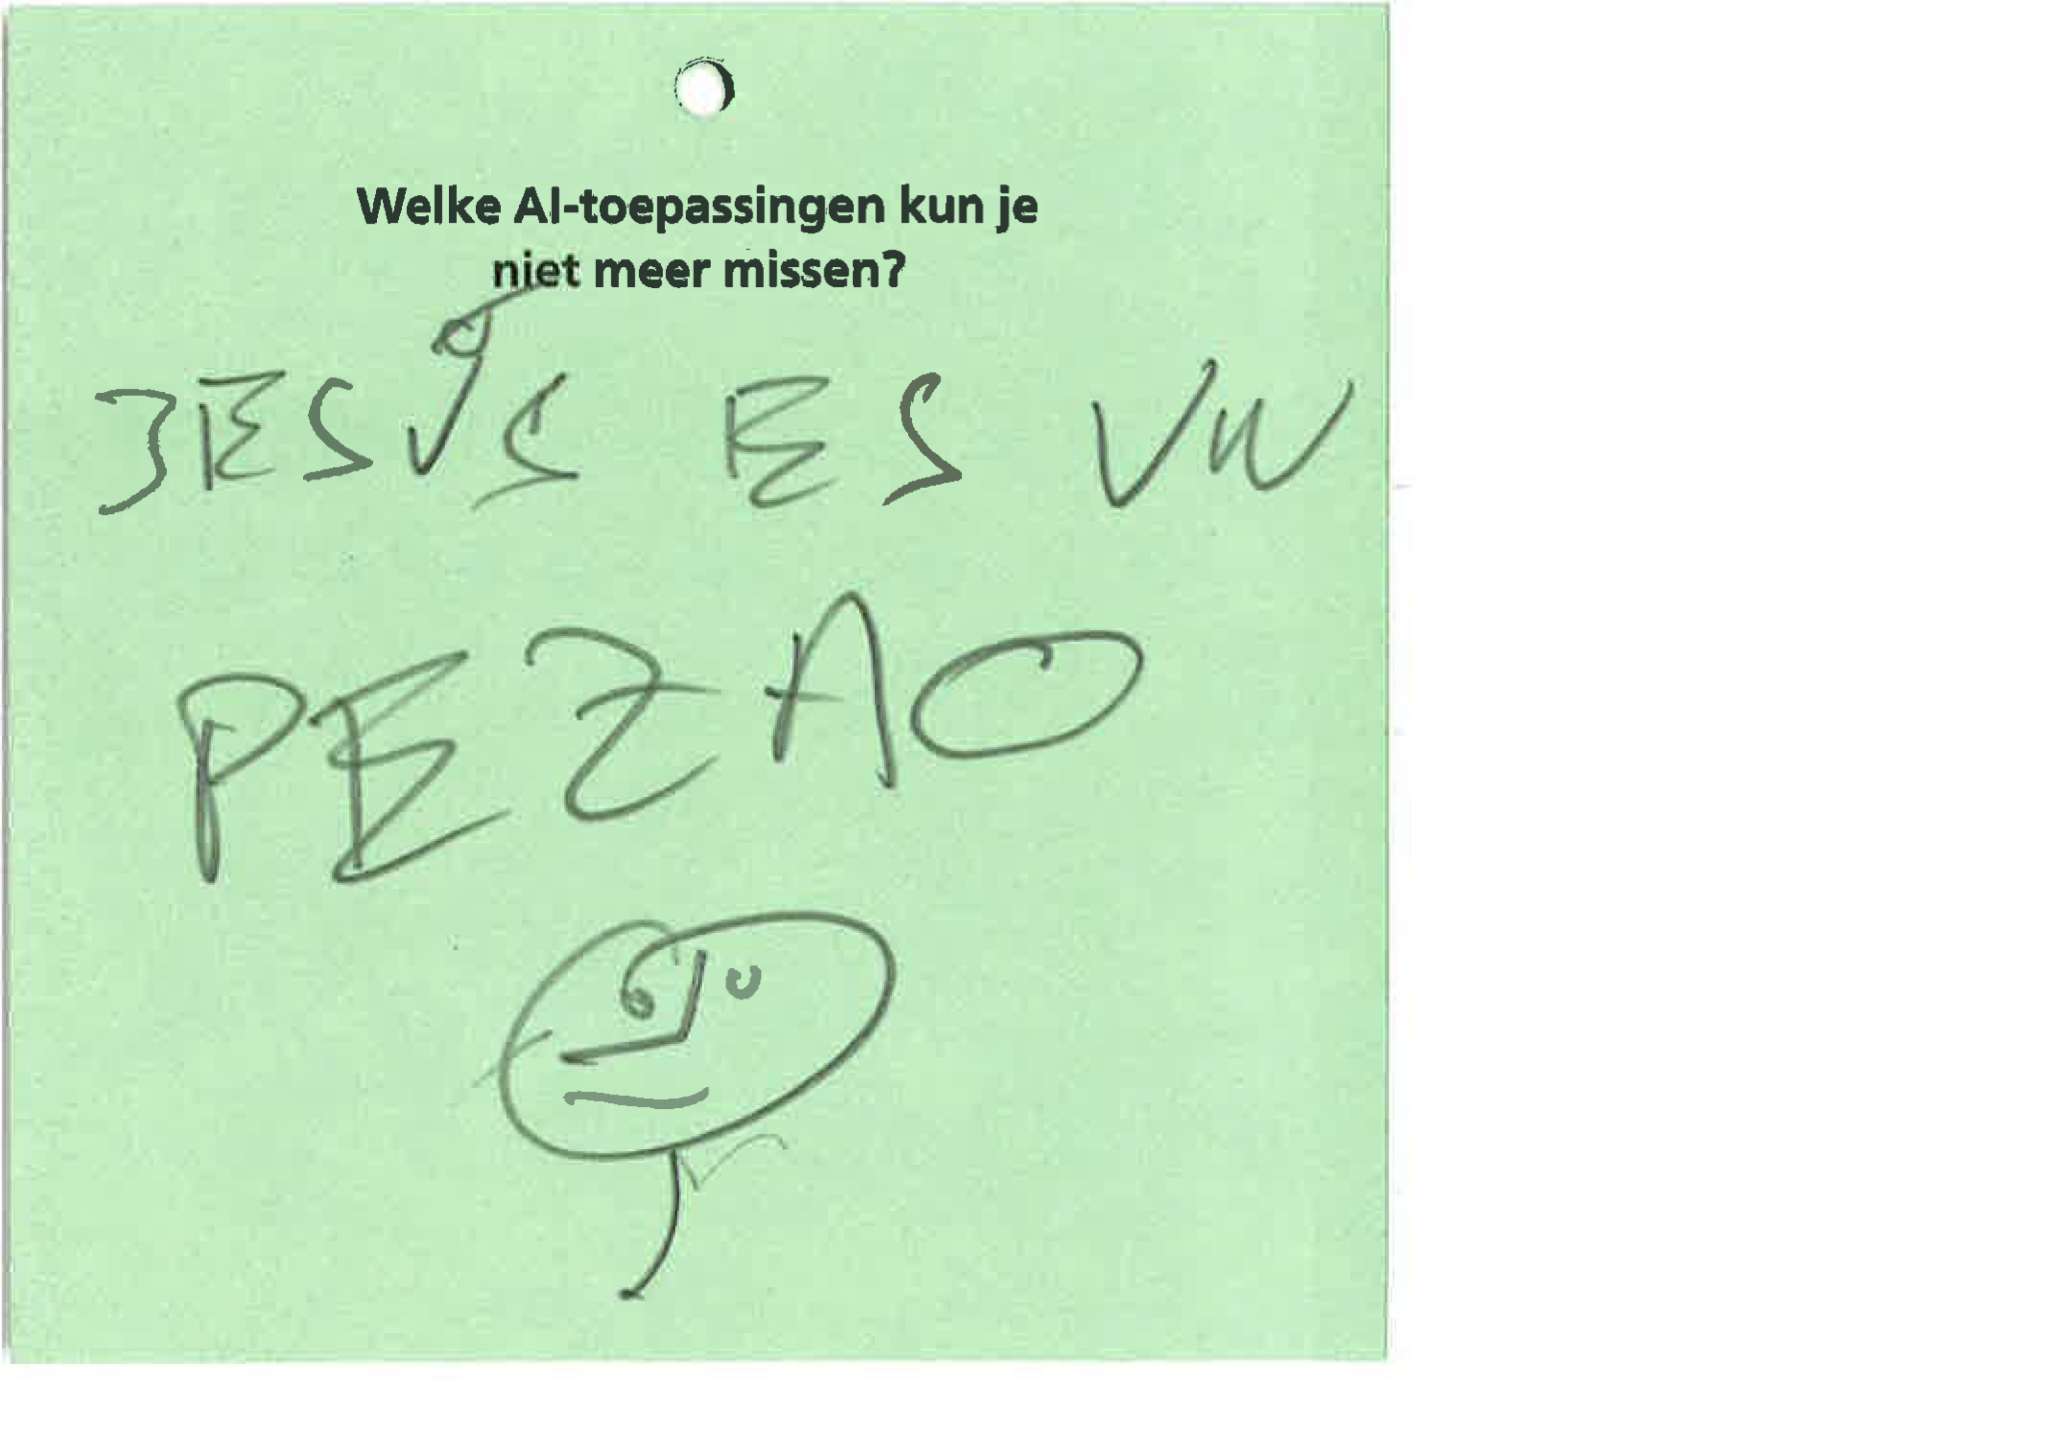 Welke AI-toepassingen kun je
niet meer missen?
JESUS ES UN
PEZAO